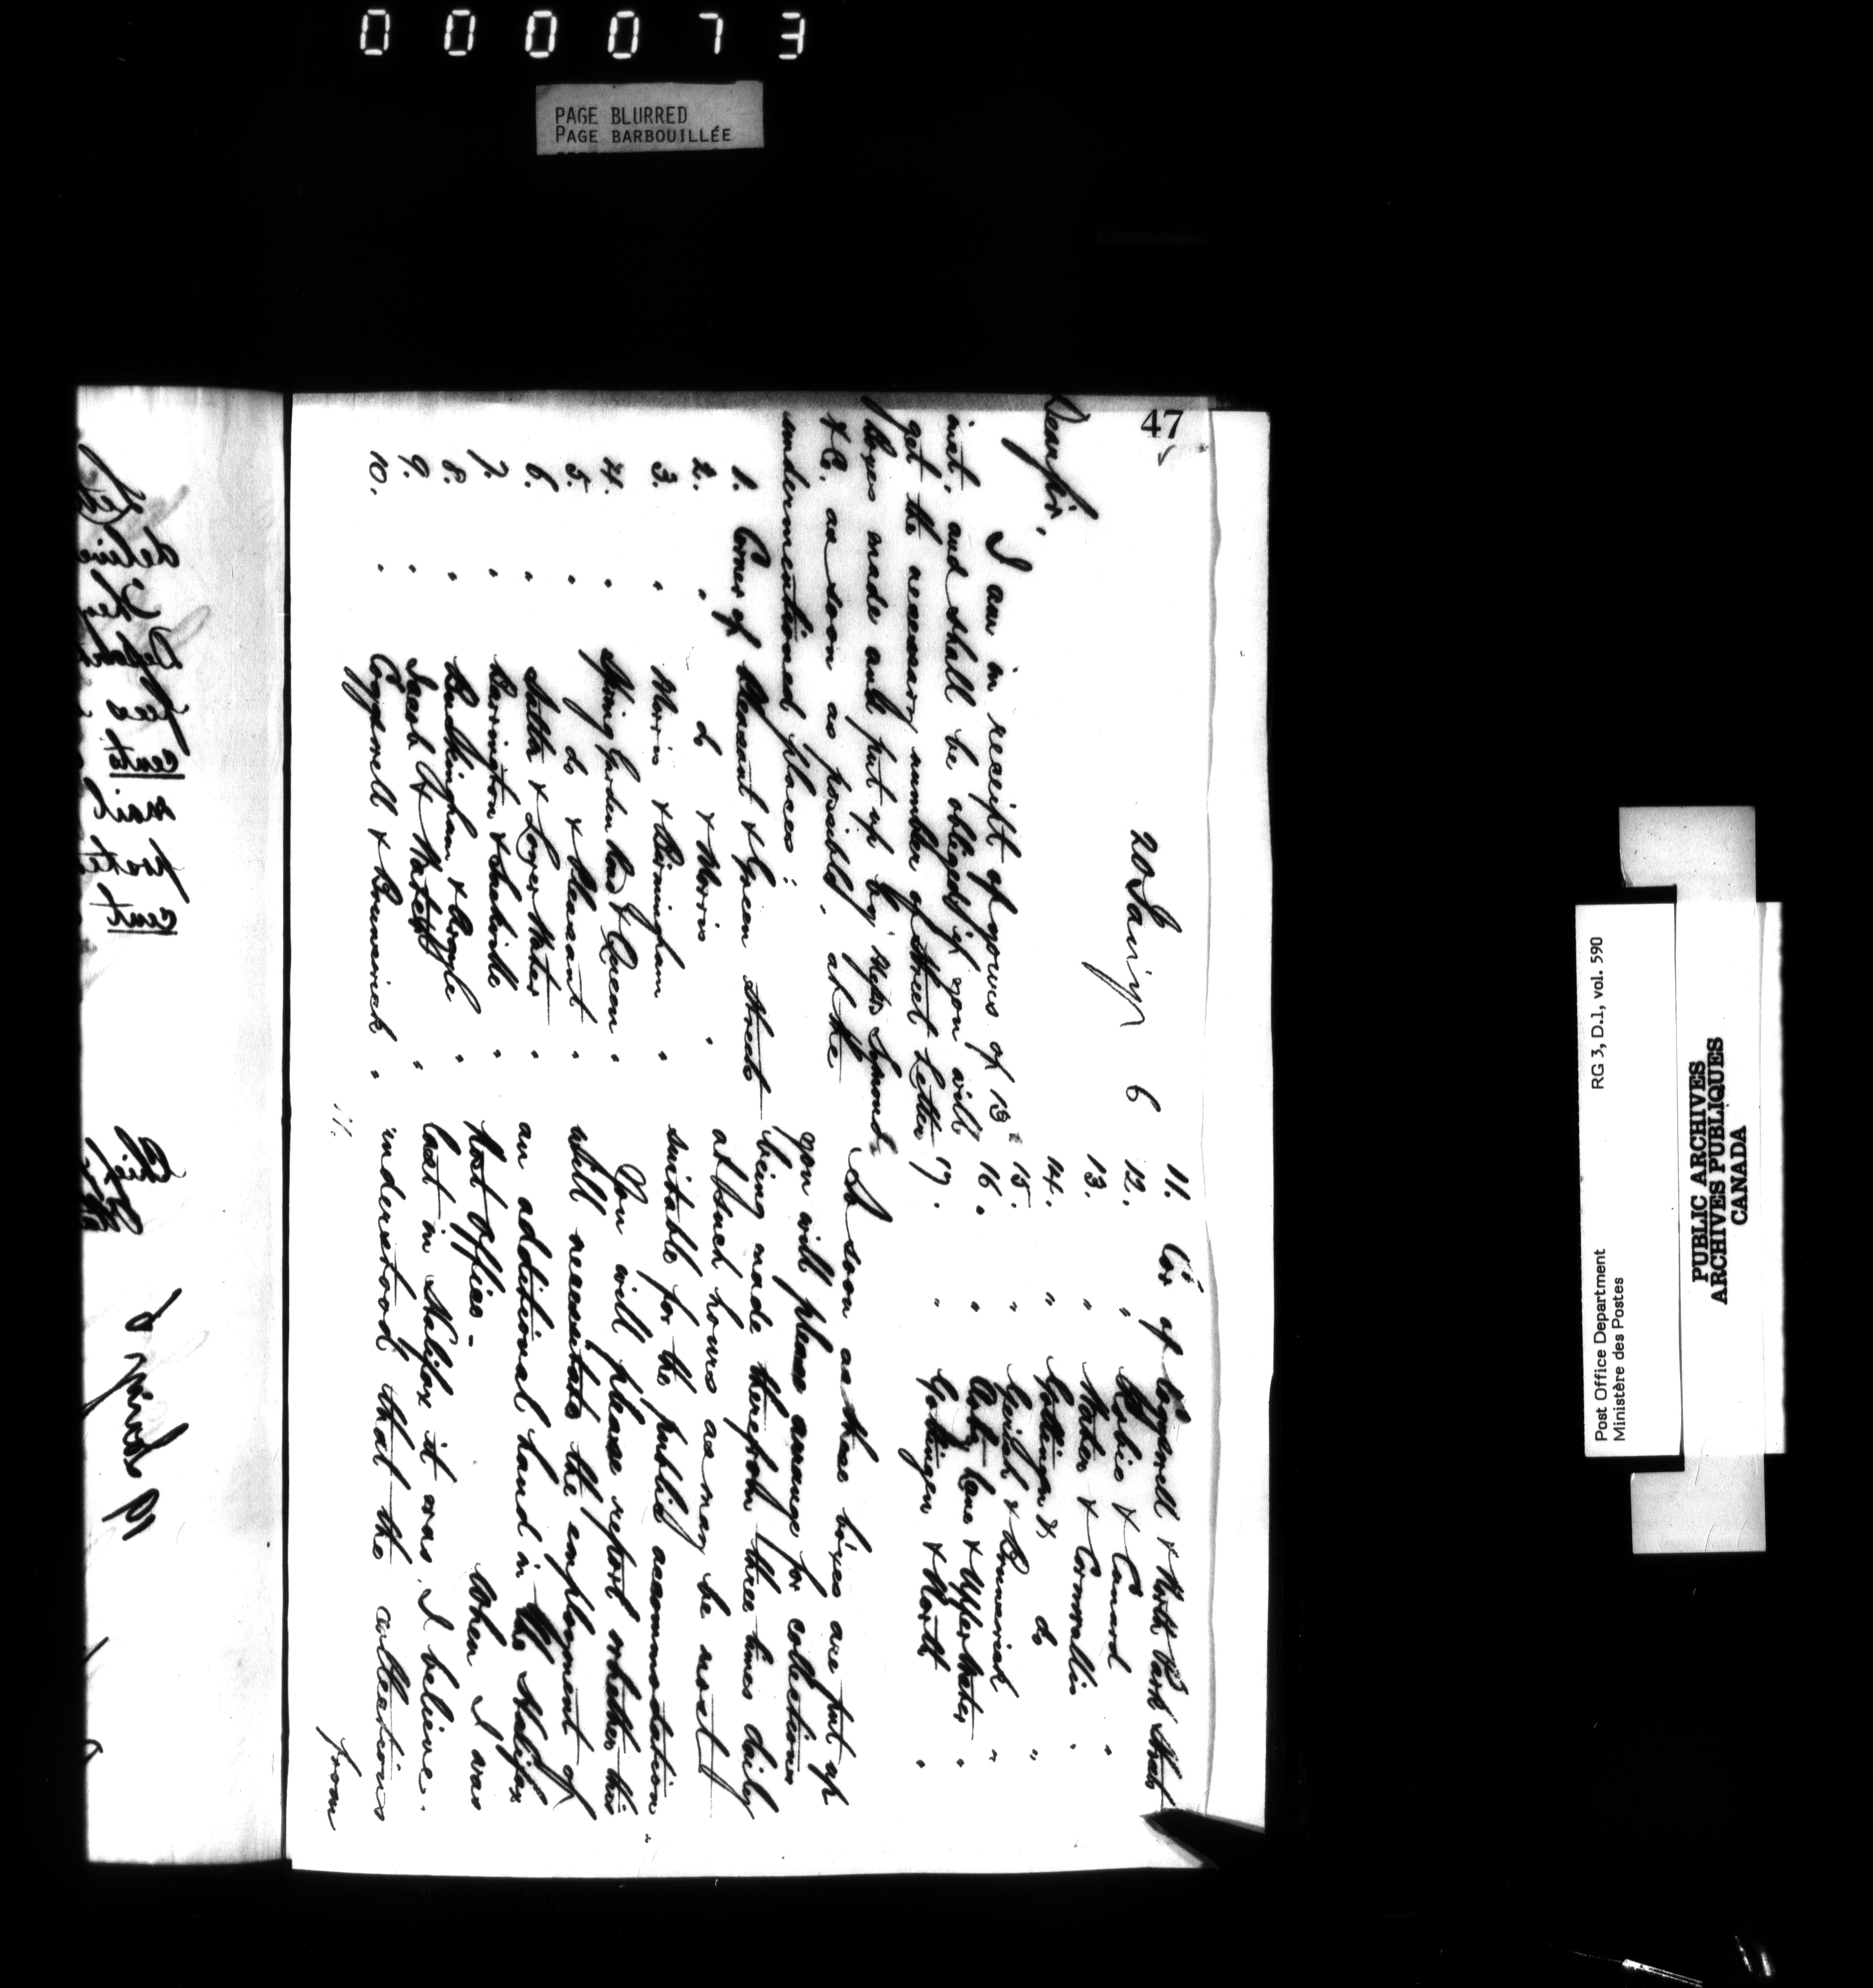 000073
PAGE BLURRED
PAGE BARBOUILLÉE
47
20 Jany 6
Dear Sir,
I am in receipt of yours of 13th
inst. and shall be obliged if you will
get the necessary number of street Letter
Boxes made and put up by Messrs Symonds
& Co. as soon as possible, at the
undermentioned places:
1. Corner of Pleasant & Green Streets
2. " do & Morris "
3. " Morris & Birmingham "
4. " Spring Garden Road & Queen "
5. " do & Pleasant "
6. " Salter & Lower Water "
7. " Barrington & Sackville "
8. " Buckingham & Argyle "
9. " Jacob & "
10. " Cogswell & Brunswick "
11. Cor of Cogswell & North Park Street
12. " Robie & Cunard "
13. " & Cornwallis "
14. " Gottingen & do "
15. " & Brunswick "
16. " Lane & Upper Water "
17. " Gottingen & North "
As soon as these boxes are put up
you will please arrange for collections
being made therefrom three times daily
at such hours as may be most
suitable for the public accommodation.
You will please report whether this
will necessitate the employment of
an additional hand in the Halifax
Post Office - When I was
last in Halifax it was, I believe,
understood that the collections
from
Post Office Department
Ministère des Postes
RG 3, D.1, vol. 590
PUBLIC ARCHIVES
ARCHIVES PUBLIQUES
CANADA